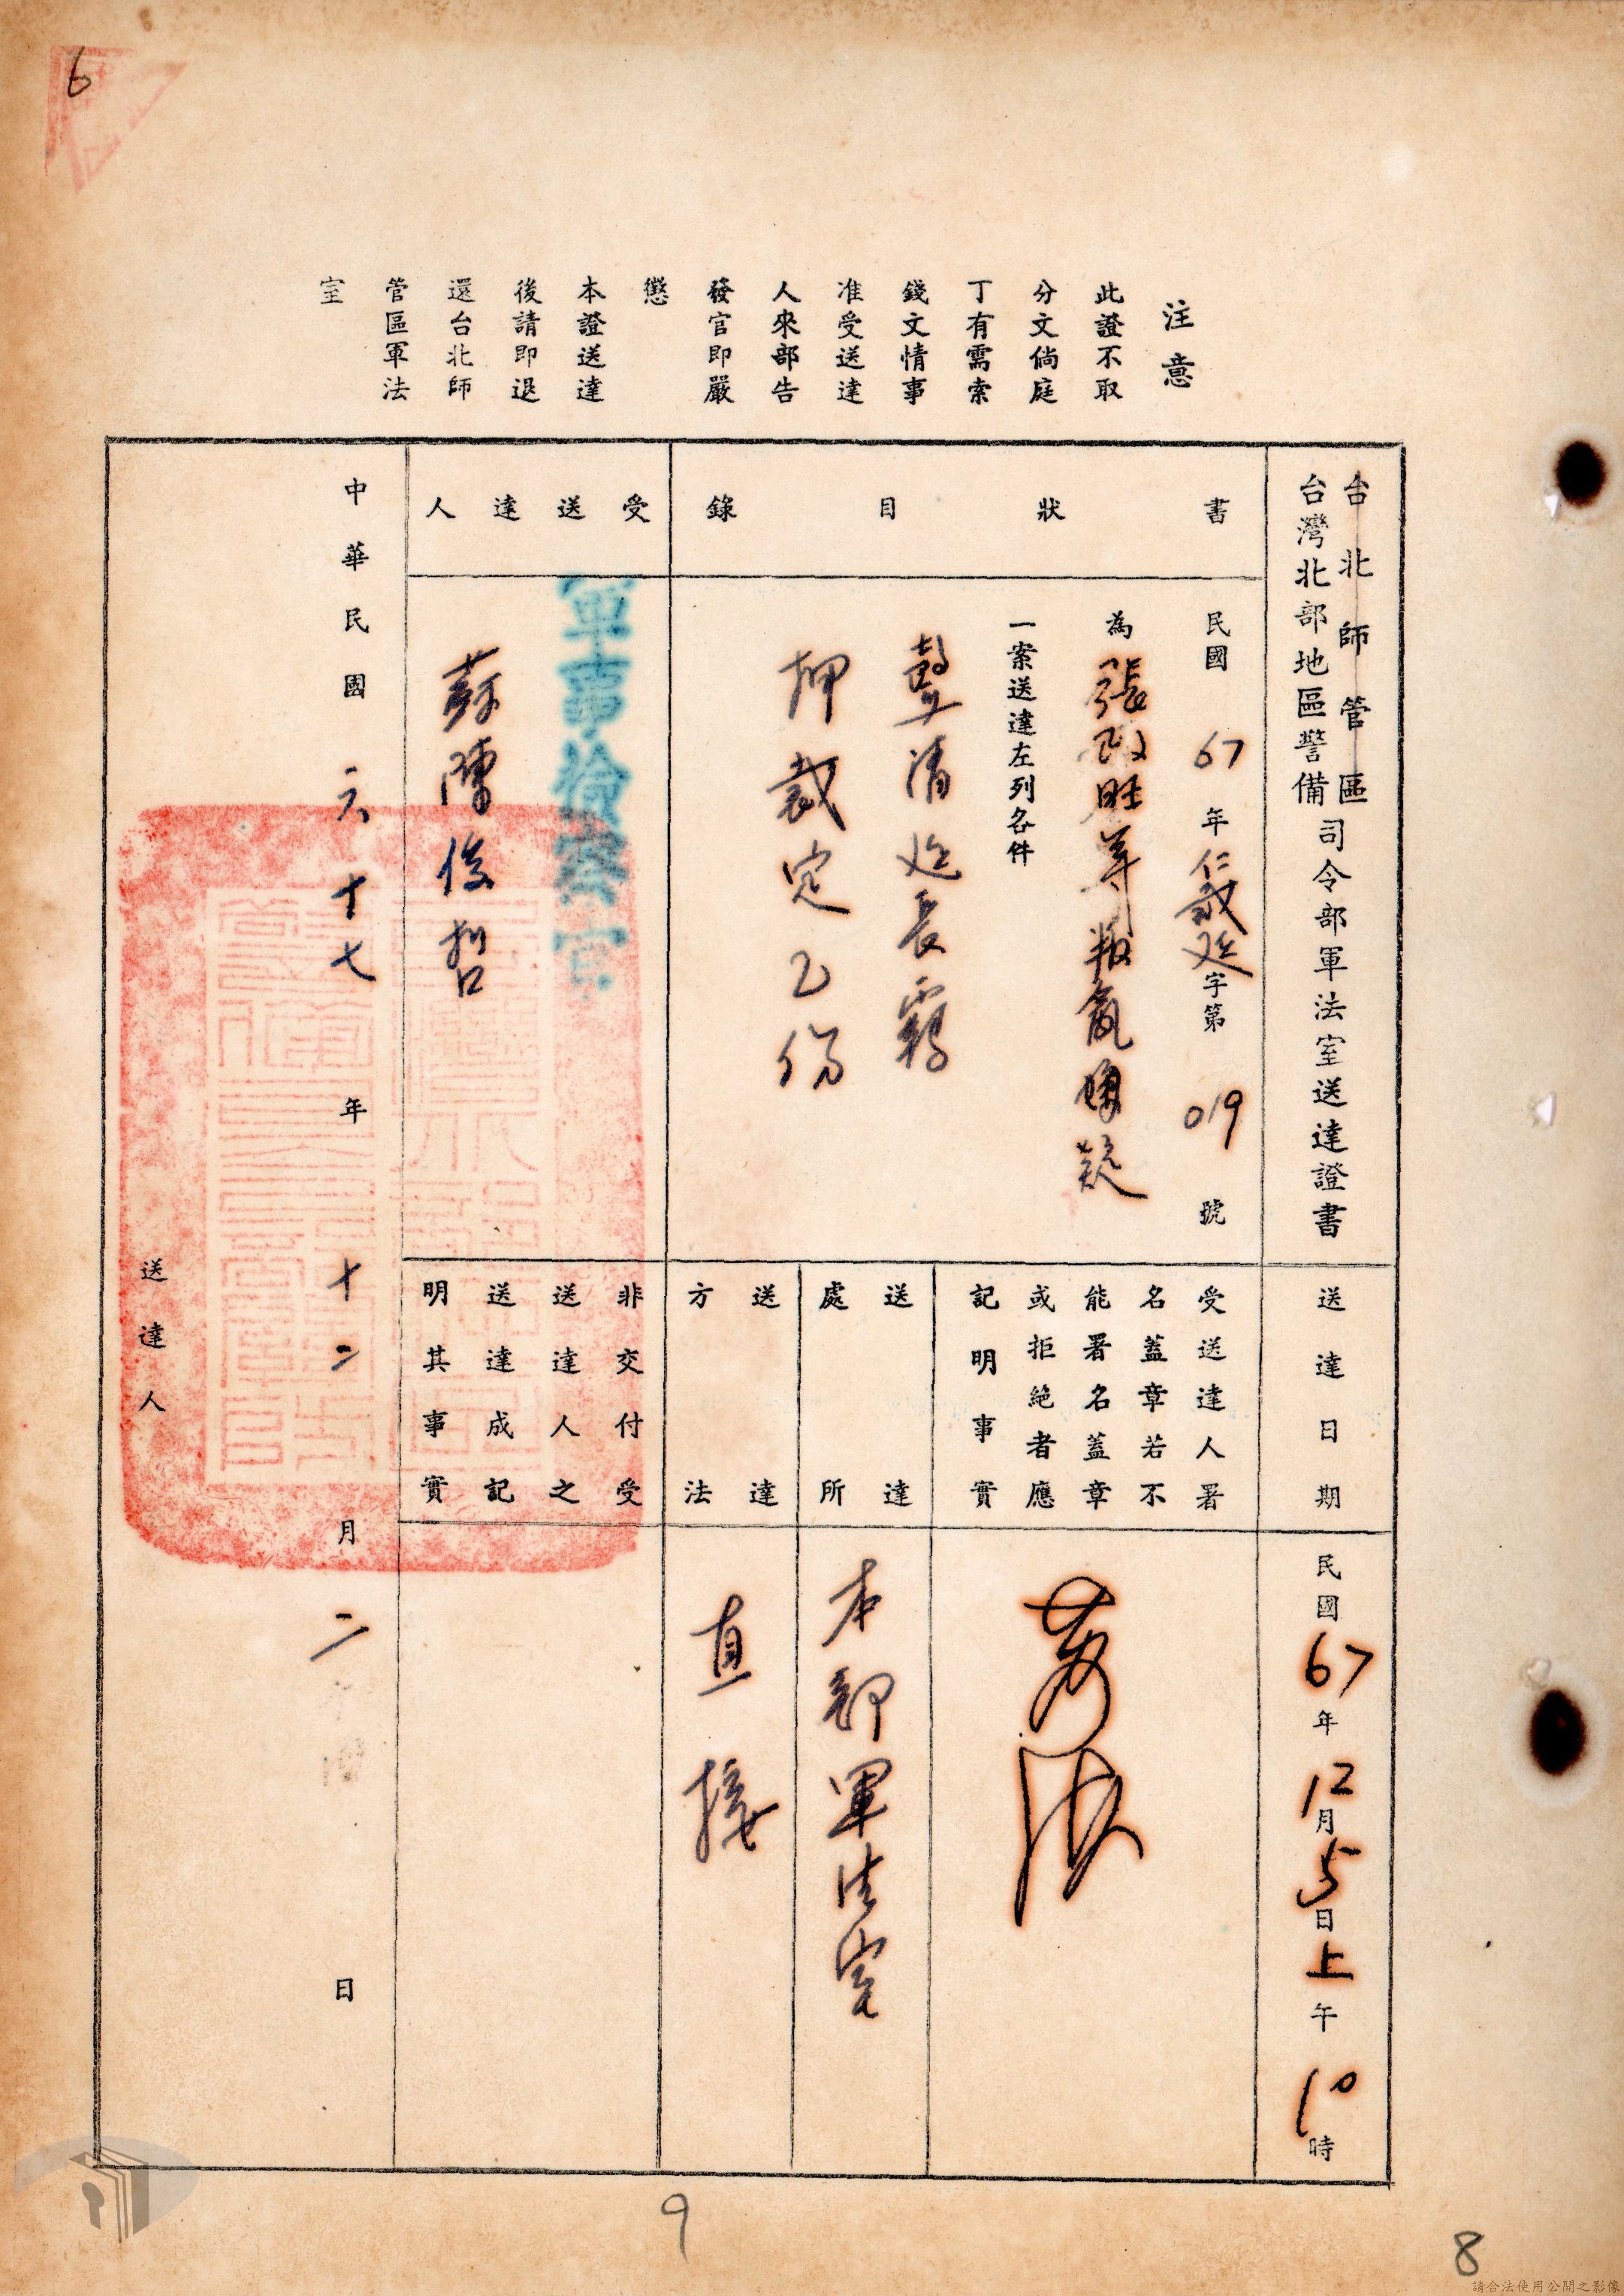 6
注意
此證不取
分文倘庭
丁有需索
錢文情事
准受送達
人來部告
發官即嚴
懲
本證送達
後請即退
還台北師
管區軍法
室
台北師管區
台灣北部地區警備
司令部軍法室送達證書
送達日期
民國67年12月5日上午10時
書狀目錄
民國67年仁裁延字第019號
為張政旺等叛亂嫌疑
一案送達左列各件
聲請延長羈
押裁定乙份
受送達人署
名蓋章若不
能署名蓋章
或拒絕者應
記明事實
送達
處所
本部軍法室
送達
方法
直接
受送達人
軍事檢察官
蘇陳俊哲
非交付受
送達人之
送達成記
明其事實
中華民國六十七年十二月二日
送達人
9
8
請合法使用公開之影像